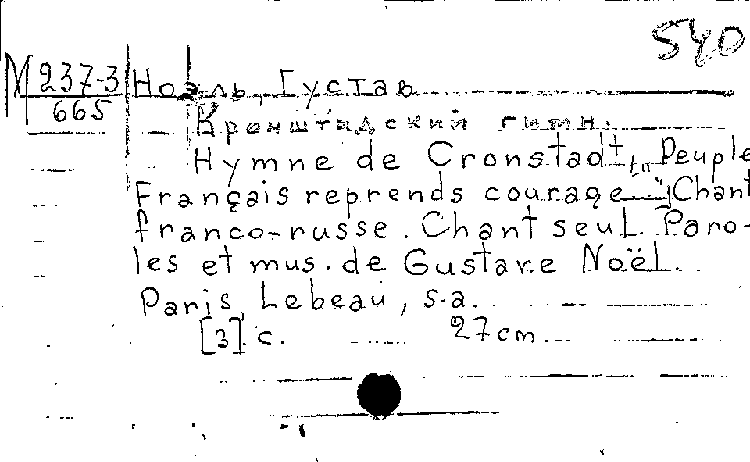 540
М 237-3 Ноэль, Густав
665
Кронштадский гимн.
Hymne de Cronstadt, „Peuple
Français reprends courage“; Chant
franco-russe. Chant seul. Paro-
les et mus. de Gustave Noël.
Paris, Lebeau, s.a.
[3] с. 27 cm.